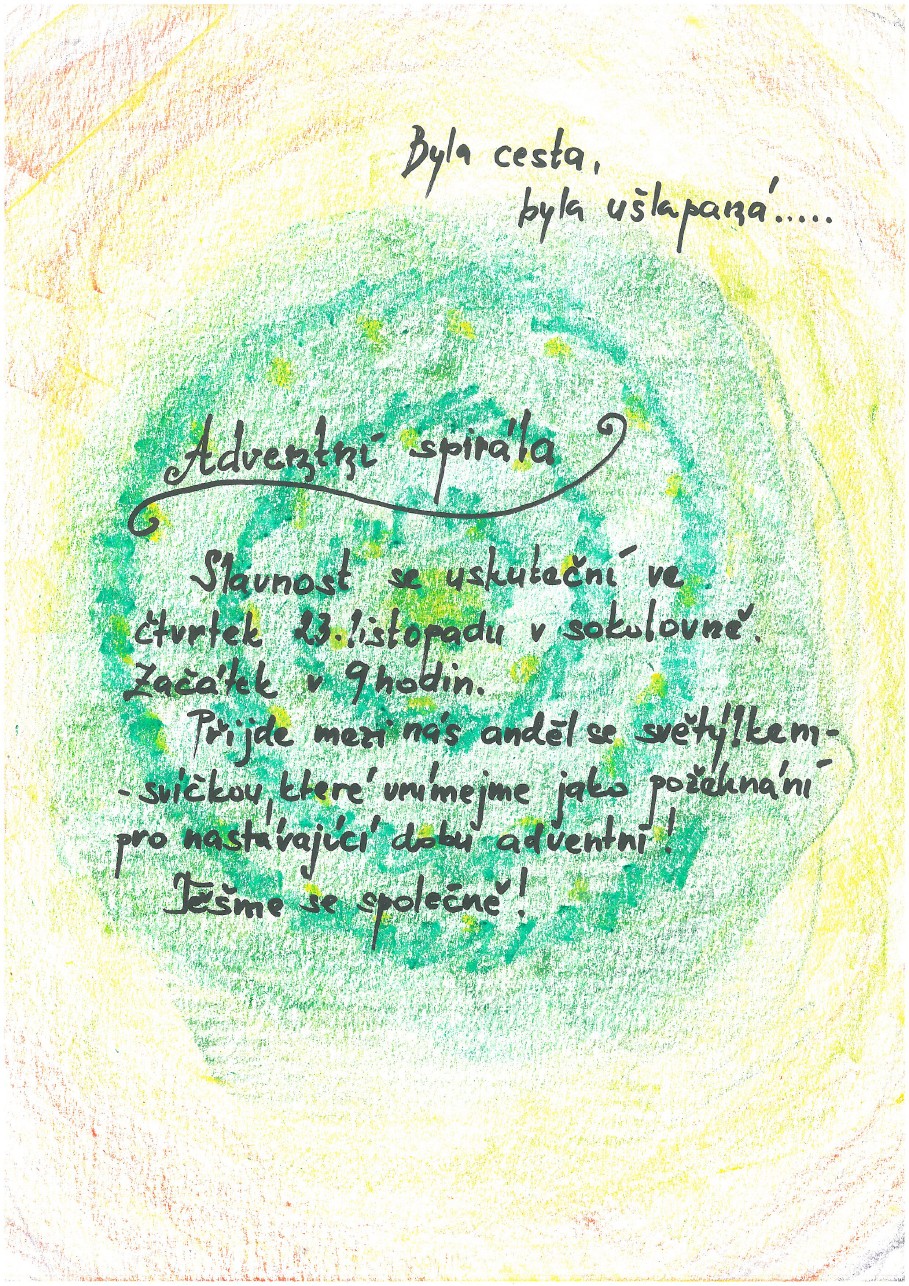 Byla cesta,
byla ušlapaná.....
Adventní spirála
Slavnost se uskuteční ve
čtvrtek 23. listopadu v sokolovně.
Začátek v 9 hodin.
Přijde mezi nás anděl se světýlkem-
- svíčkou, které vnímejme jako požehnání
pro nastávající dobu adventní!
Těšme se společně!